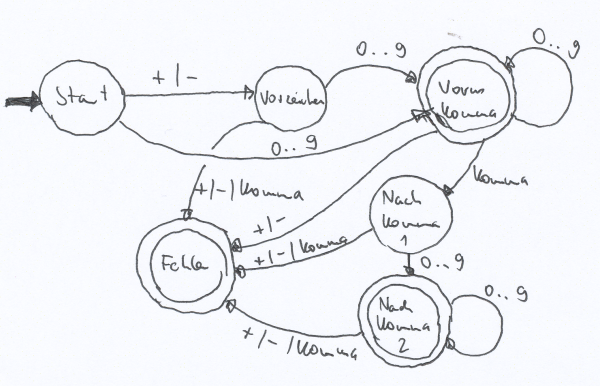 Start
+/-
Vorzeichen
0..9
Vorm
Komma
0..9
0..9
+/-/Komma
+/-
Komma
Nach
Komma
1
+/-/Komma
0..9
Fehler
Nach
Komma
2
0..9
+/-/Komma